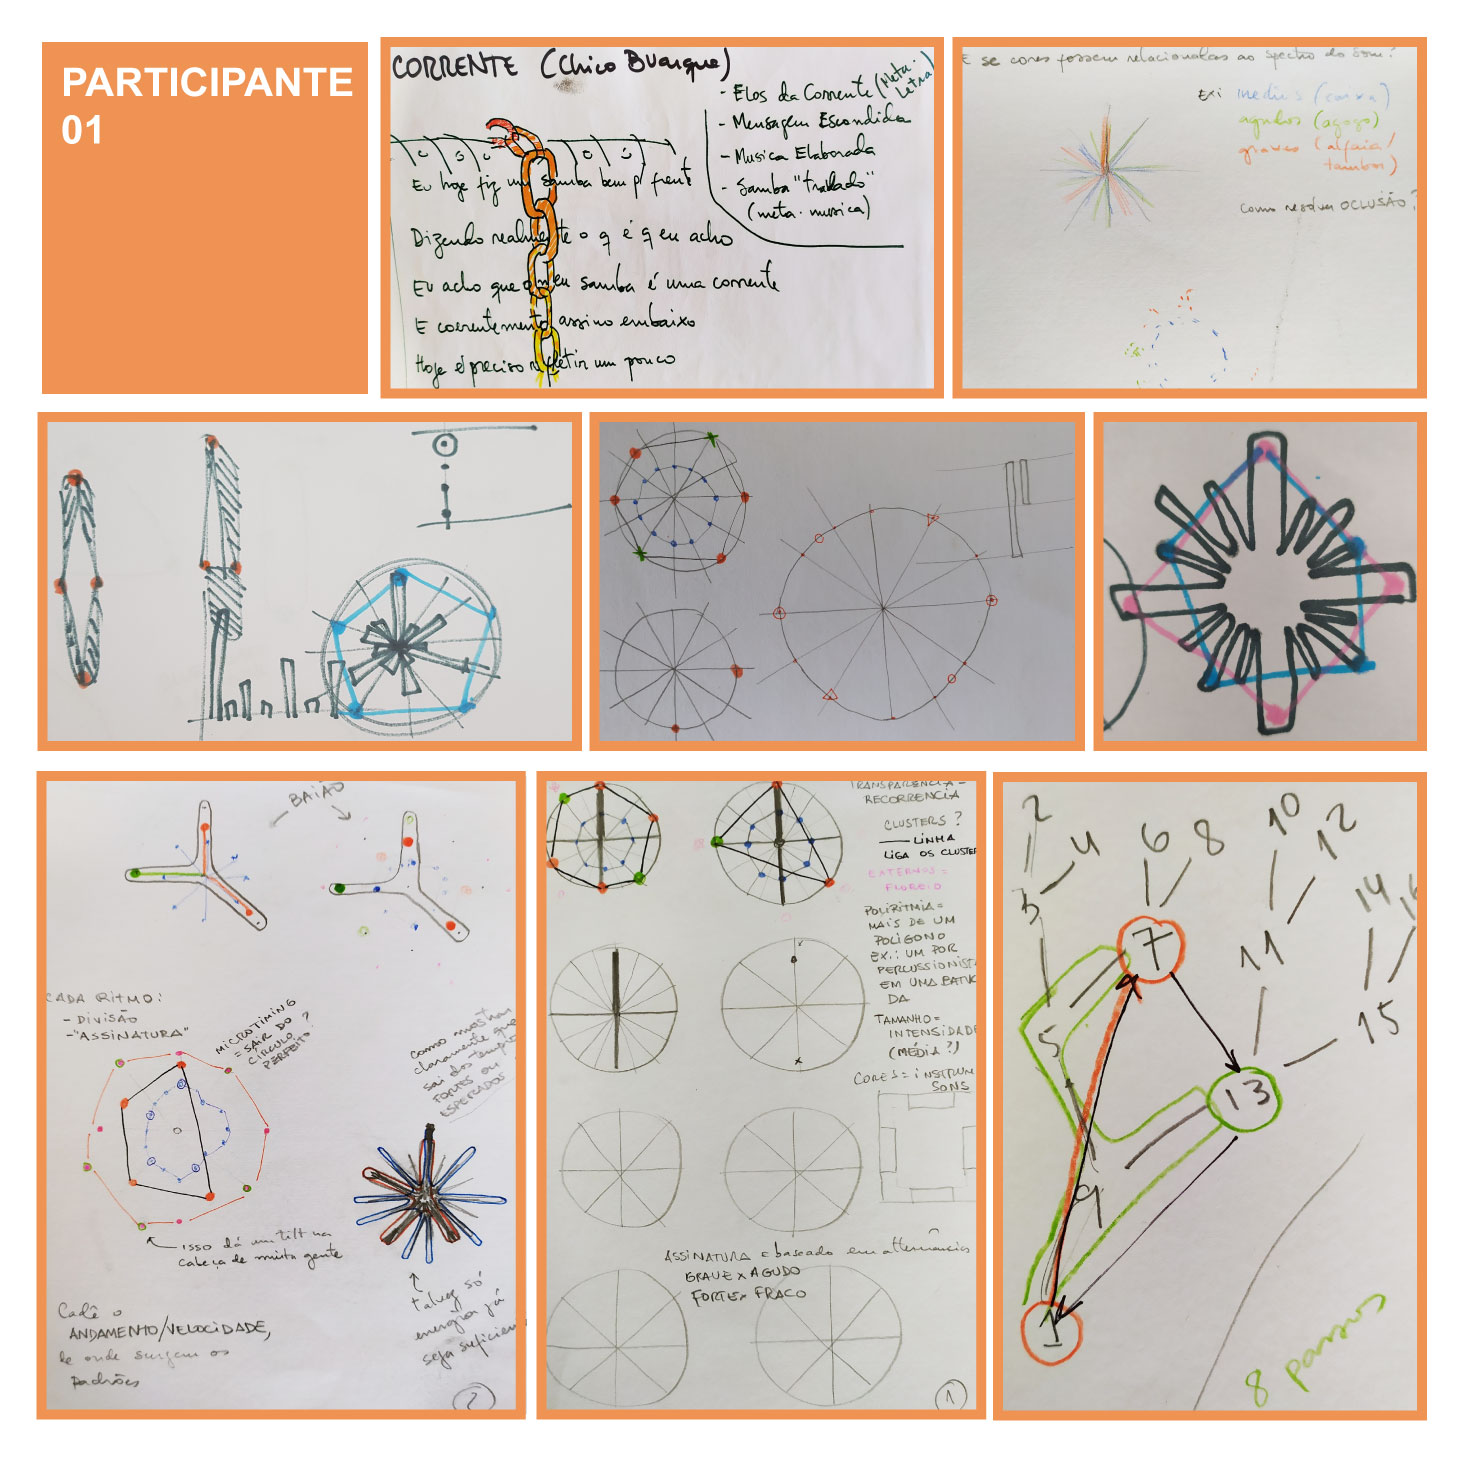 PARTICIPANTE
01
CORRENTE (Chico Buarque)
- Elos da Corrente (Meta-
Letra)
- Mensagem Escondida
- Musica Elaborada
- Samba "trablado"
(meta-musica)
Eu hoje fiz um samba bem p/ frente
Dizendo realmente o q é q eu acho
Eu acho que o meu samba é uma corrente
E coerentemente assino embaixo
Hoje é preciso refletir um pouco
E se cores fossem relacionadas ao spectro do som?
Ex: medios (caixa)
agudos (agogo)
graves (alfaia/
tambor)
como resolver OCLUSÃO?
BAIÃO
CADA RITMO:
- DIVISÃO
- "ASSINATURA"
MICROTIMING
= SAIR DO
CÍRCULO
PERFEITO?
como mostrar
claramente que
sai dos tempos
FORTES OU
ESPERADOS
ISSO dá um tilt na
cabeça de muita gente
talvez só
energia já
seja suficien
Cadê o
ANDAMENTO/VELOCIDADE,
de onde surgem os
padrões
2
TRANSPARÊNCIA =
RECORRENCIA
CLUSTERS?
LINHA
LIGA OS CLUSTER
EXTERNOS =
FLOREIO
POLIRITMIA =
MAIS DE UM
POLÍGONO
EX.: UM POR
PERCUSSIONIST
EM UMA BATUC
DA
TAMANHO =
INTENSIDADE
(MÉDIA?)
CORES = INSTRUM
SONS
ASSINATURA = baseado em alternâncias
GRAVE x AGUDO
FORTE x FRACO
1
2
4
6
8
10
12
3
7
11
14
16
5
13
15
9
1
8 passos